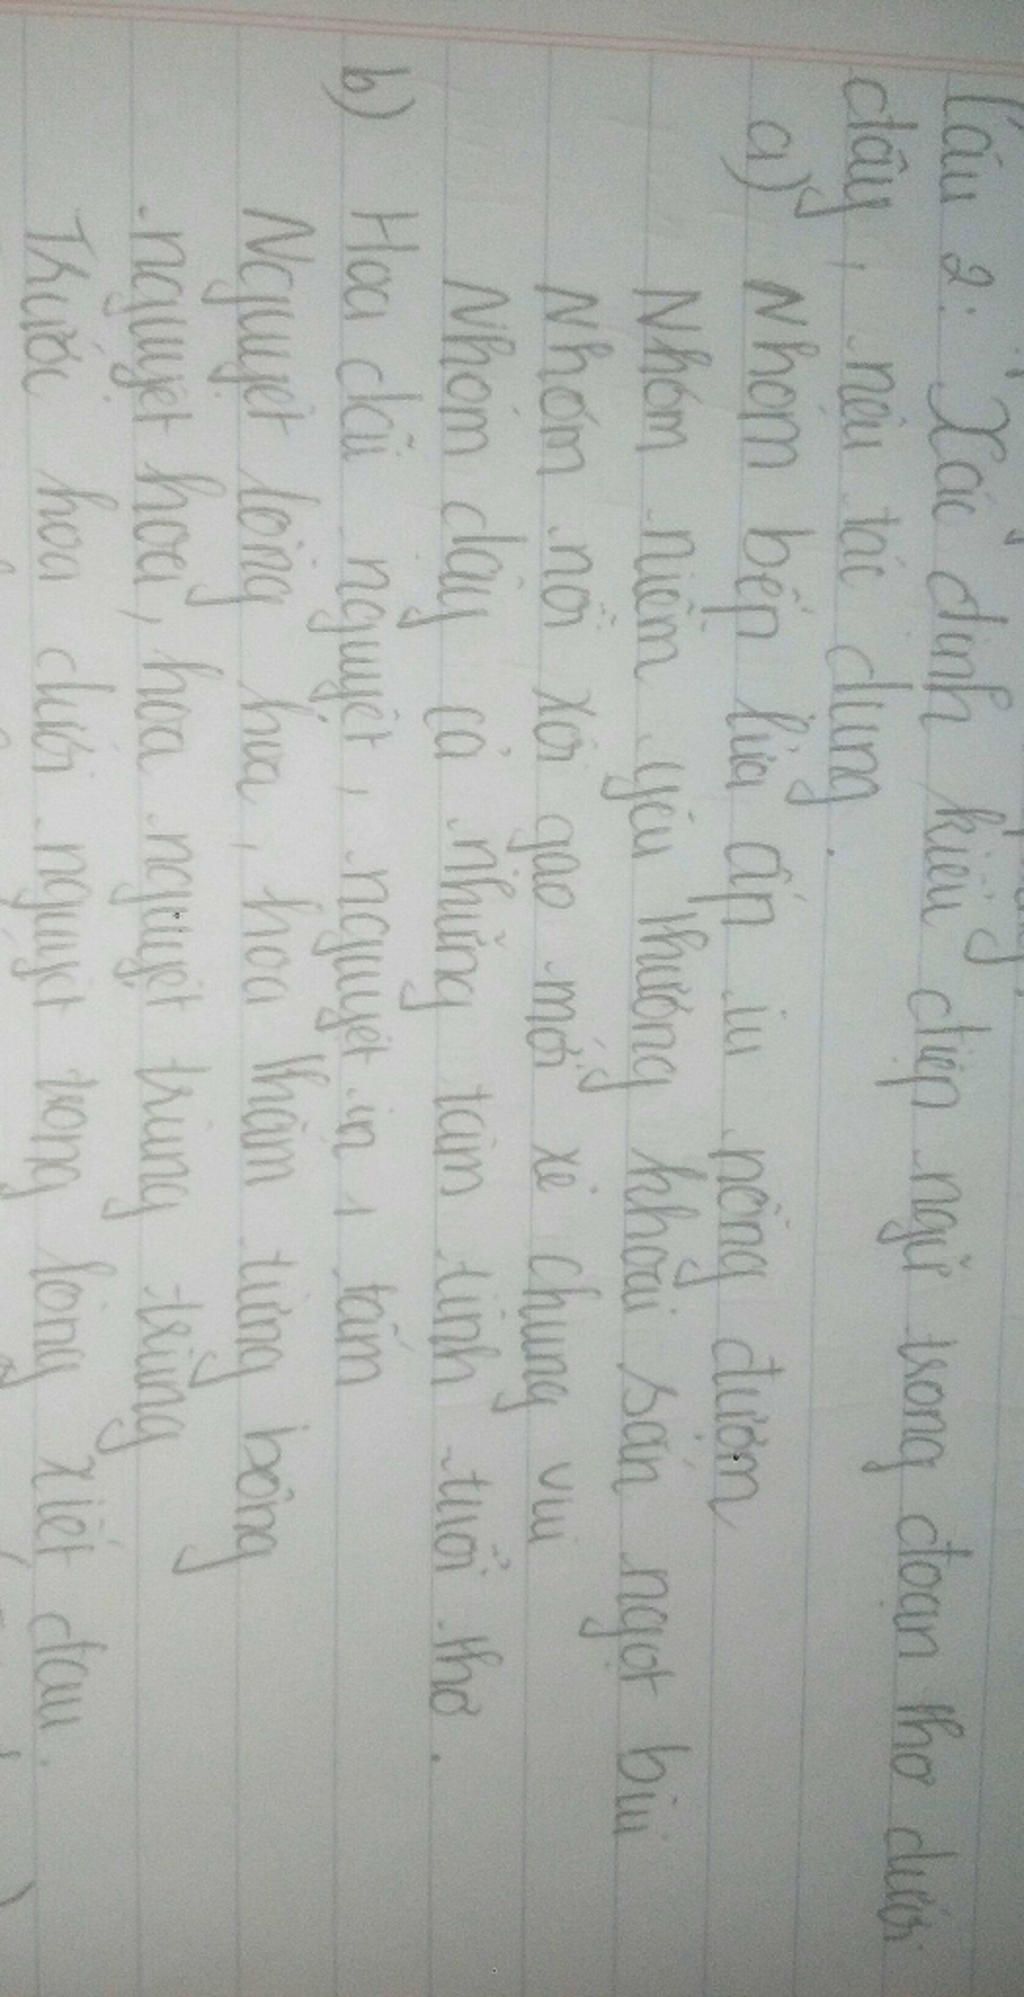 Câu 2: Xác định kiểu điệp ngữ trong đoạn thơ dưới
đây, nêu tác dụng.
a) Nhóm bếp lửa ấp iu nồng đượm
Nhóm niềm yêu thương khoai sắn ngọt bùi
Nhóm nồi xôi gạo mới xẻ chung vui
Nhóm dậy cả những tâm tình tuổi thơ.
b) Hoa dãi nguyệt, nguyệt in 1 tấm
Nguyệt lồng hoa, hoa thắm từng bông
nguyệt hoa, hoa nguyệt trùng trùng
Trước hoa dưới nguyệt trong lòng xiết đau.